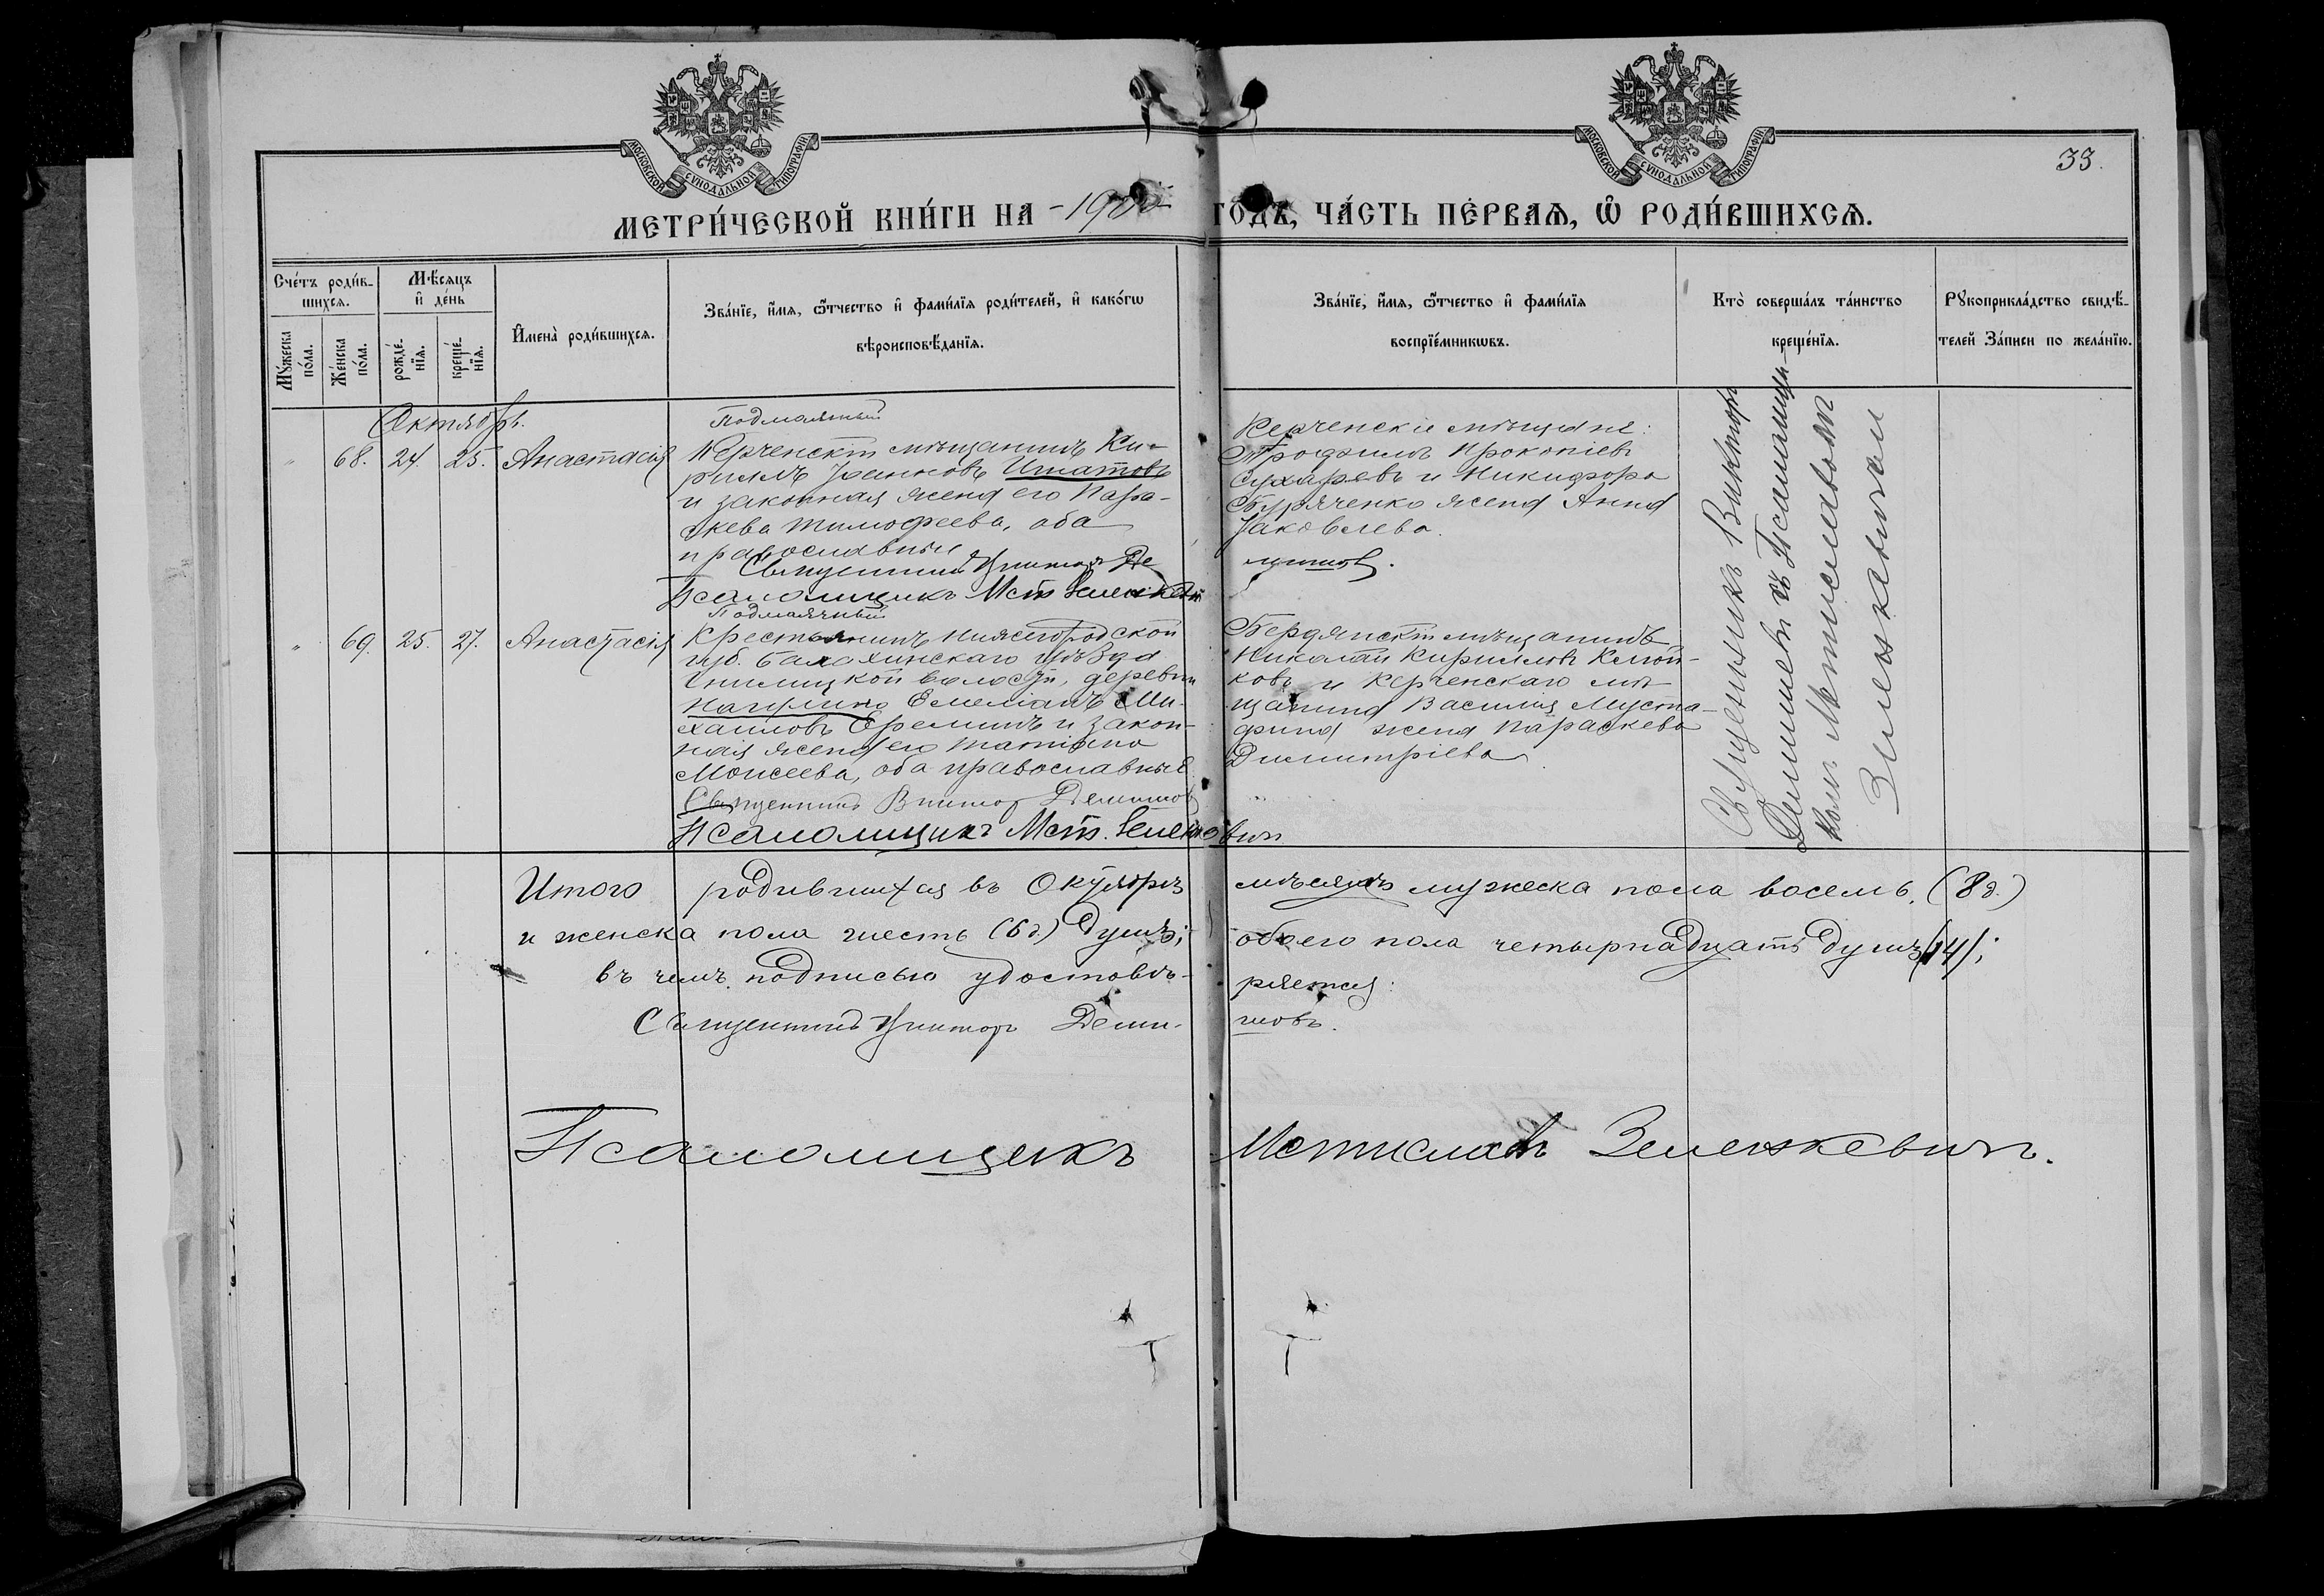 МОСКОВСКОЙ СѴНОДАЛЬНОЙ ТИПОГРАФІИ
МОСКОВСКОЙ СѴНОДАЛЬНОЙ ТИПОГРАФІИ
33.
МЕТРИ́ЧЕСКОЙ КНИ́ГИ НА -1900- ГО́ДЪ, ЧА́СТЬ ПЕ́РВАѦ, Ѡ҆ РОДИ́ВШИХСѦ.
Сче́тъ роди́в-
шихсѧ.
Мꙋ́жеска
по́ла.
Же́нска
по́ла.
Мѣ́сѧцъ
и҆ де́нь
рожде́-
нїѧ.
креще́-
нїѧ.
И҆мена̀ роди́вшихсѧ.
Зва́нїе, и҆́мѧ, ѻ҆́тчество и҆ фами́лїѧ роди́телей, и҆ како́гѡ
вѣроисповѣ́данїѧ.
Зва́нїе, и҆́мѧ, ѻ҆́тчество и҆ фами́лїѧ
воспрїе́мникѡвъ.
Кто̀ соверша́лъ та́инство
креще́нїѧ.
Рꙋкоприкла́дство свидѣ́-
телей За́писи по жела́нїю.
Октябрь.
" 68. 24. 25. Анастасія
Подмаячный
Керченскій мѣщанинъ Ки-
риллъ Іоанновъ Игнатовъ
и законная жена его Пара-
скева Тимофеева, оба
православные
Священникъ Викторъ Де
Псаломщикъ Мст. Зеленкевич
Керченскіе мѣщане:
Трофимъ Прокопіевъ
Сухаревъ и Никифора
Буряченко жена Анна
Іаковлева.
мишов.
" 69. 25. 27. Анастасія
Подмаячный
Крестьянинъ Нижегородской
губ. Балахинскаго уѣзда
волости, деревни
Нагулино Емеліанъ Ми-
хаиловъ Ереминъ и закон-
ная жена его Татіана
Моисеева, оба православные
Священникъ Викторъ Демишов
Псаломщикъ Мст. Зеленкевич
Бердянскій мѣщанинъ
Николай Кирилловъ Клюй-
ковъ и Керченскаго мѣ-
щанина Василія Муста-
фина жена Параскева
Димитріева.
Священникъ Викторъ
Демишевъ съ Псаломщи-
комъ Мстиславомъ
Зеленкевичемъ
Итого родившихся въ Октябрѣ мѣсяцѣ мужеска пола восемь, (8 д.)
и женска пола шесть (6 д.) душъ; обоего пола четырнадцать душъ (14);
въ чемъ подписью удостовѣ- ряется:
Священникъ Викторъ Деми- шовъ.
Псаломщикъ Мстиславъ Зеленкевичъ.